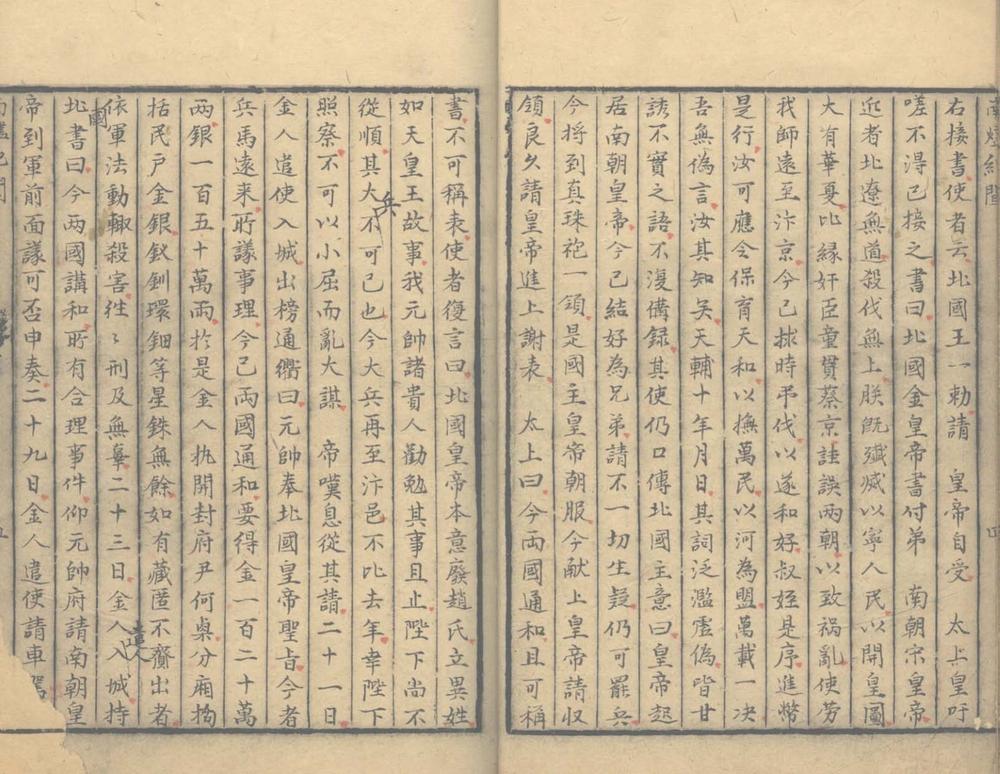 右接書使者云北國王一勅請　皇帝自受　太上皇吁
嗟不得已接之書曰北國金皇帝書付弟　南朝宋皇帝
近者北遼無道殺伐無上朕既殱滅以寧人民以開皇圖
大有華夏比縁奸臣童貫蔡京詿誤兩朝以致禍亂使勞
我師遠至汴京今已採時弔伐以遂和好叔姪是序進幣
是行汝可應令保育天和以撫萬民以河為盟萬載一决
吾無偽言汝其知矣天輔十年月日其詞泛濫虛偽皆甘
誘不實之語不復備録其使仍口傳北國主意曰皇帝起
居南朝皇帝今已結好為兄弟請不一切生疑仍可罷兵
今将到真珠袍一領是國主皇帝朝服今献上皇帝請収
領良久請皇帝進上謝表　太上曰今両國通和且可稱
書不可稱表使者復言曰北國皇帝本意廢趙氏立異姓
如天皇王故事我元帥諸貴人勸勉其事且止陛下尚不
從順其大不可已也今大兵再至汴邑不比去年幸陛下
兵
照察不可以小屈而亂大謀　帝嘆息從其請二十一日
金人遣使入城出榜通衢曰元帥奉北國皇帝聖旨今者
兵馬遠來所議事理今已両國通和要得金一百二十萬
两銀一百五十萬両於是金人執開封府尹何㮚分廂拘
括民戸金銀釵釧環鈿等星銖無餘如有藏匿不賫出者
依軍法動輙殺害往〻刑及無辜二十三日金人入城持
遣人
北書曰今两國講和所有合理事件仰元帥府請南朝皇
國
帝到軍前面議可否申奏二十九日金人遣使請車駕